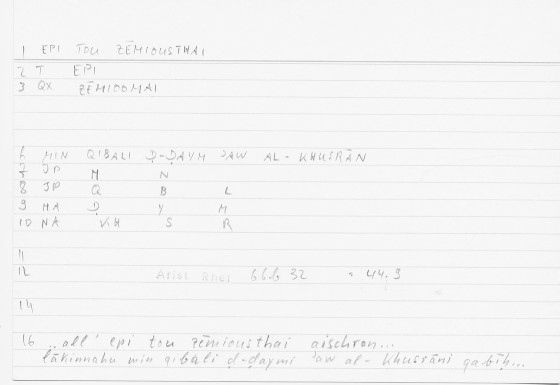 1 EPI TOU ZĒMIOUSTHAI
2 T EPI
3 QX ZĒMIOOMAI
6 MIN QIBALI Ḍ-ḌAYM ʾAW AL-KHUSRĀN
7 JP M N
8 JP Q B L
9 MA Ḍ Y M
10 NA KH S R
11
12 Arist Rhet 66b 32 = 44.9
14
16 ..all' epi tou zēmiousthai aischron...
lākinnahu min qibali ḍ-ḍaymi ʾaw al-khusrāni qabīḥ...